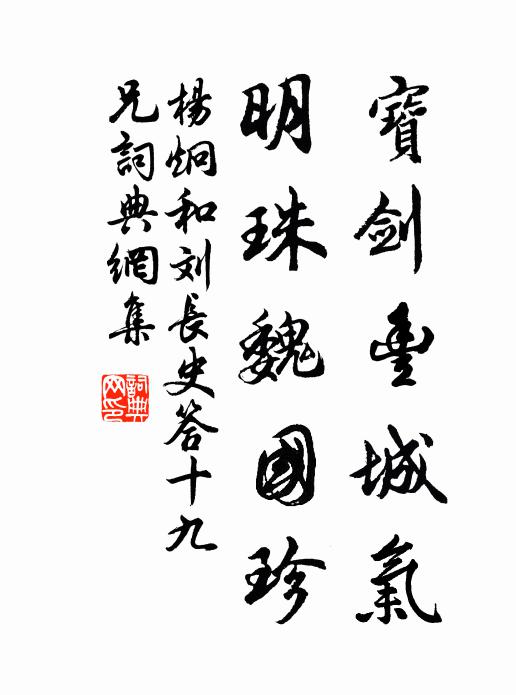 寶劍豐城氣
明珠魏國珍
楊炯和刘長史答十九
兄詞典網集
詞典
网印